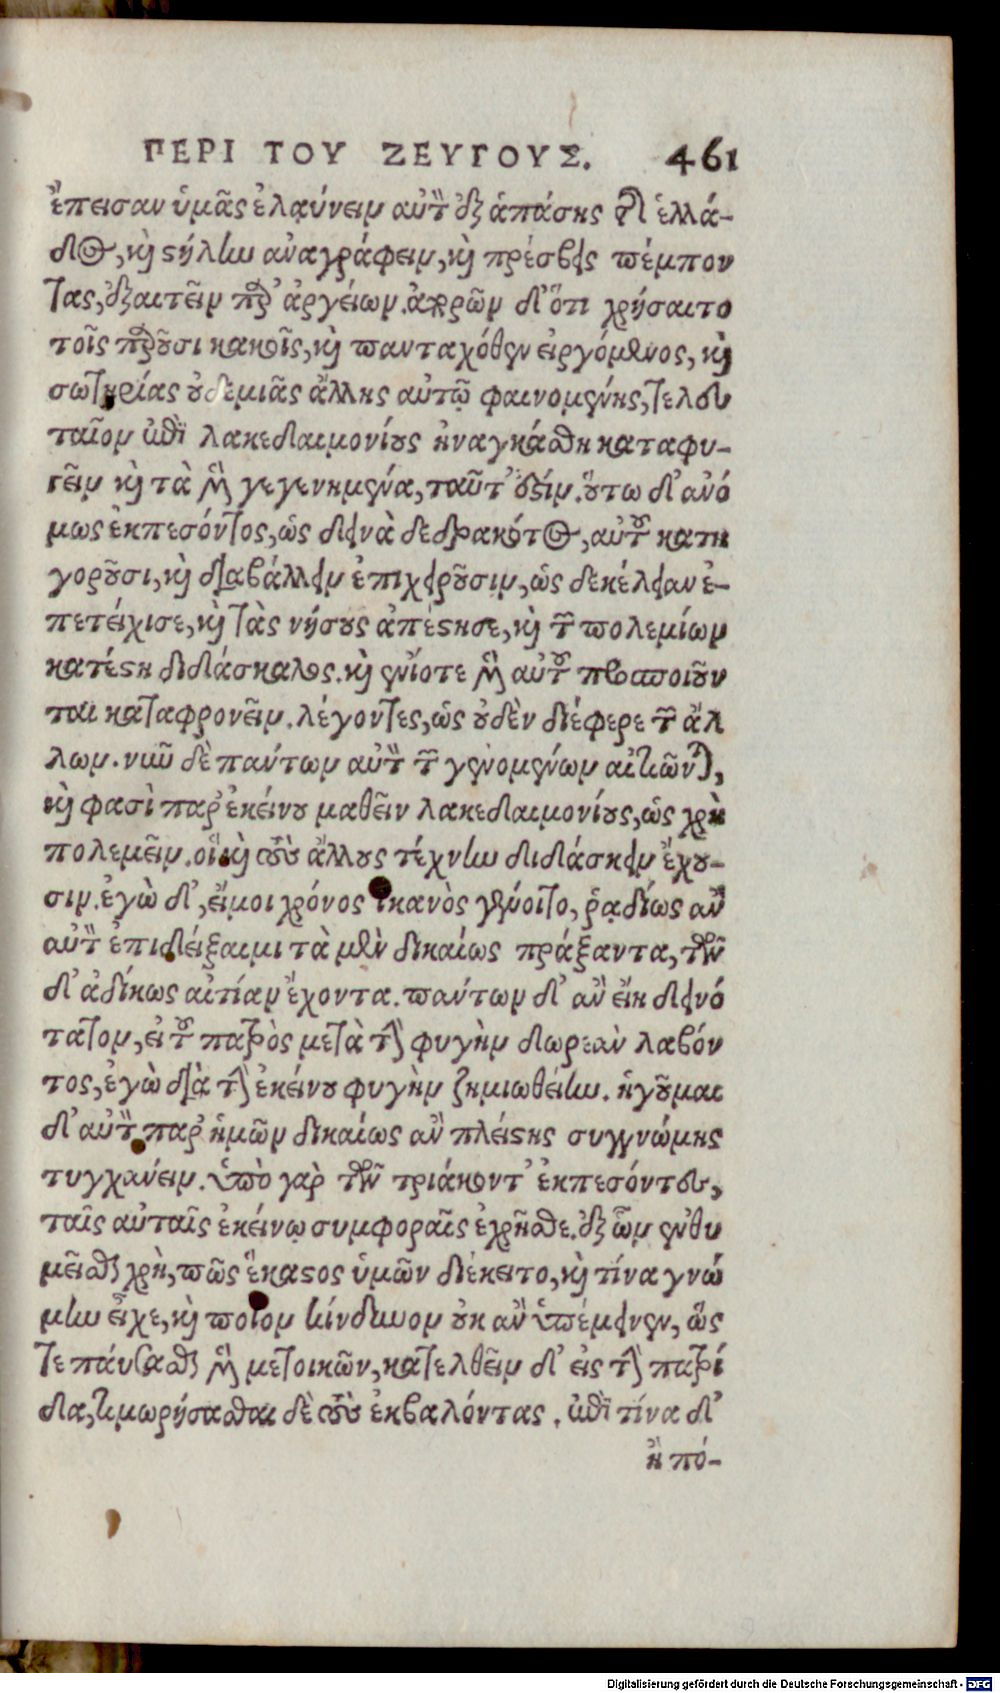 ΠΕΡΙ ΤΟΥ ΖΕΥΓΟΥΣ. 461
ἔπεισαν ὑμᾶς ἐλαύνειν αὐτὸν ἐξ ἁπάσης τῆς ἑλλά-
δος, καὶ στήλην ἀναγράφειν, καὶ πρέσβεις πέμπον
τας, ἐξαιτεῖν παρ' ἀργείων. ἀπορῶν δ' ὅτι χρήσαιτο
τοῖς παροῦσι κακοῖς, καὶ πανταχόθεν εἰργόμενος, καὶ
σωτηρίας οὐδεμιᾶς ἄλλης αὐτῷ φαινομένης, τελευ
ταῖον ἐπὶ λακεδαιμονίους ἠναγκάσθη καταφυ-
γεῖν καὶ τὰ μὲν γεγενημένα, ταῦτ' ἐστίν. οὕτω δ' ἀνό
μως ἐκπεσόντος, ὡς δεινὰ δεδρακότος, αὐτοῦ κατη
γοροῦσι, καὶ διαβάλλειν ἐπιχειροῦσιν, ὡς δεκέλειαν ἐ-
πετείχισε, καὶ τὰς νήσους ἀπέστησε, καὶ τῶν πολεμίων
κατέστη διδάσκαλος. καὶ ἐνίοτε μὲν αὐτοῦ προσποιοῦν
ται καταφρονεῖν. λέγοντες, ὡς οὐδὲν διέφερε τῶν ἄλ
λων. νυνὶ δὲ πάντων αὐτὸν τῶν γενομένων αἰτιῶνται,
καὶ φασὶ παρ' ἐκείνου μαθεῖν λακεδαιμονίους, ὡς χρὴ
πολεμεῖν. οἳ καὶ τοὺς ἄλλους τέχνην διδάσκειν ἔχου-
σιν. ἐγὼ δ', εἴ μοι χρόνος ἱκανὸς γένοιτο, ῥᾳδίως ἂν
αὐτὸν ἐπιδείξαιμι τὰ μὲν δικαίως πράξαντα, τῶν
δ' ἀδίκως αἰτίαν ἔχοντα. πάντων δ' ἂν εἴη δεινό
τατον, εἰ τοῦ πατρὸς μετὰ τὴν φυγὴν δωρεὰν λαβόν
τος, ἐγὼ διὰ τὴν ἐκείνου φυγὴν ζημιωθείην. ἡγοῦμαι
δ' αὐτὸν παρ' ἡμῶν δικαίως ἂν πλείστης συγγνώμης
τυγχάνειν. ὑπὸ γὰρ τῶν τριάκοντ' ἐκπεσόντες,
ταῖς αὐταῖς ἐκείνῳ συμφοραῖς ἐχρῆσθε. ἐξ ὧν ἐνθυ
μεῖσθαι χρὴ, πῶς ἕκαστος ὑμῶν διέκειτο, καὶ τίνα γνώ
μην εἶχε, καὶ ποῖον κίνδυνον οὐκ ἂν ὑπέμεινεν, ὥς
τε παύσασθαι μὲν μετοικῶν, κατελθεῖν δ' εἰς τὴν πατρί
δα, τιμωρήσασθαι δὲ τοὺς ἐκβαλόντας. ἐπὶ τίνα δ'
ἢ πό-
Digitalisierung gefördert durch die Deutsche Forschungsgemeinschaft - DFG